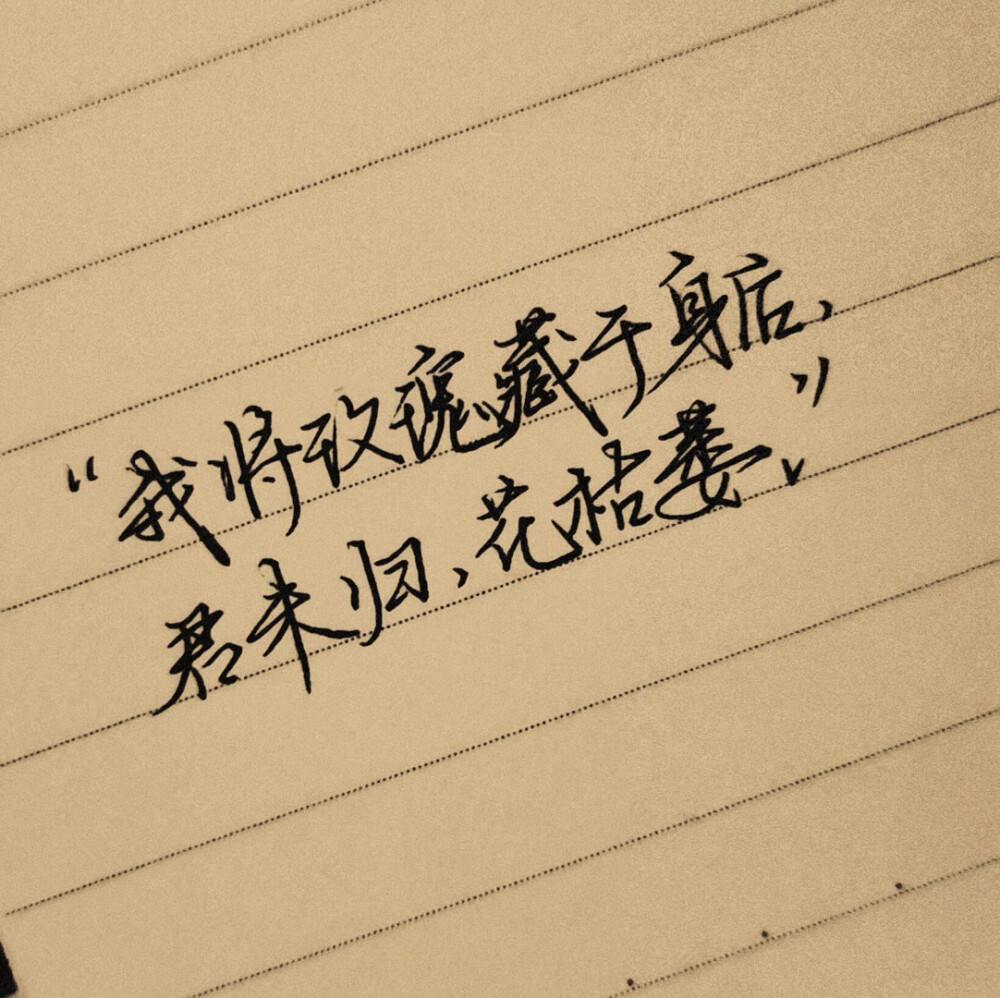 “我将玫瑰藏于身后,
君未归,花枯萎。”